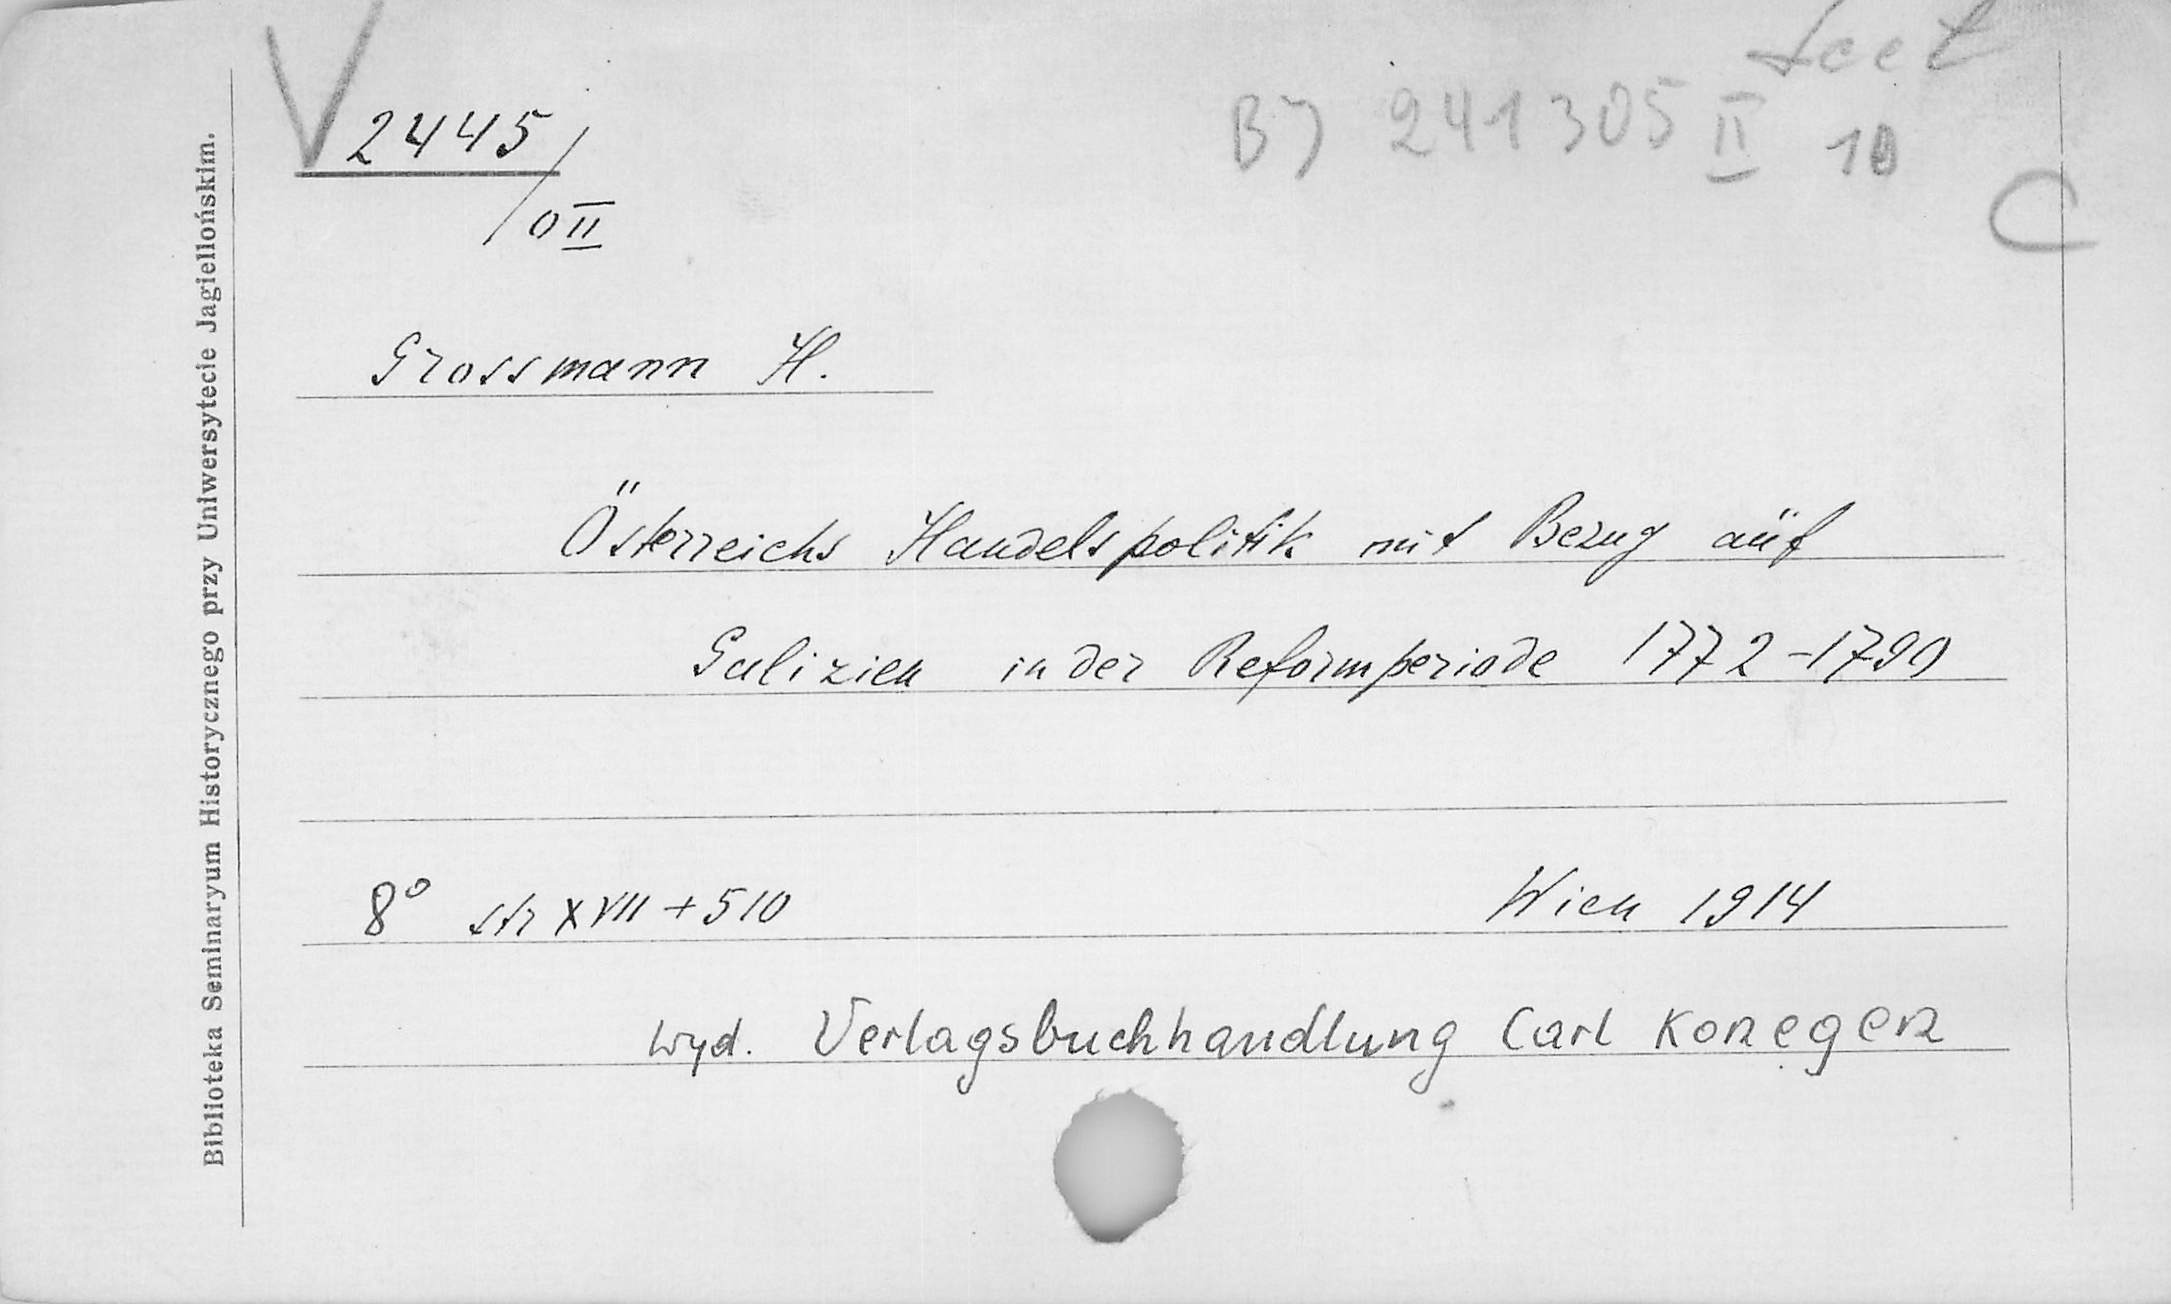 V 2445/
0 II
BJ 241305 II 10
C
Grossmann H.
Österreichs Handelspolitik mit Bezug auf
Galizien in der Reformperiode 1772-1790
8° str XVII + 510 Wien 1914
wyd. Verlagsbuchhandlung Carl Konegen
Biblioteka Seminaryum Historycznego przy Uniwersytecie Jagiellońskim.